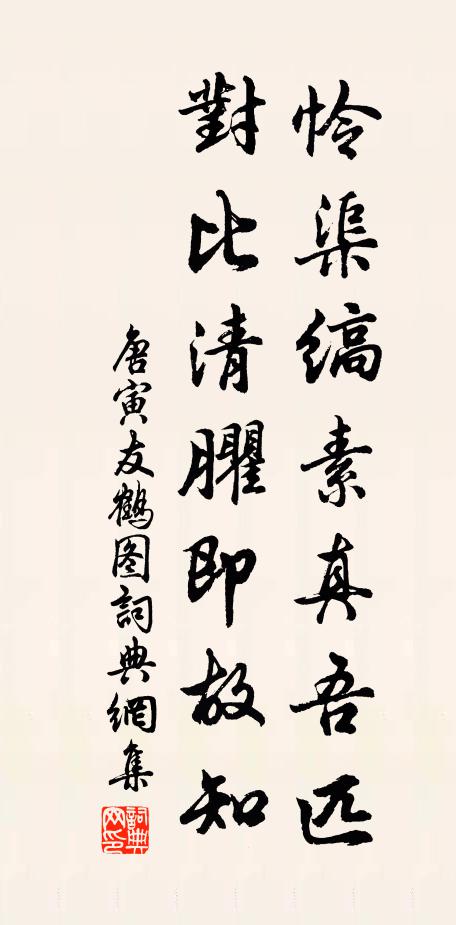 怜渠缟素真吾匹
對比清臞即故知
唐寅友鶴图詞典網集
詞典网印